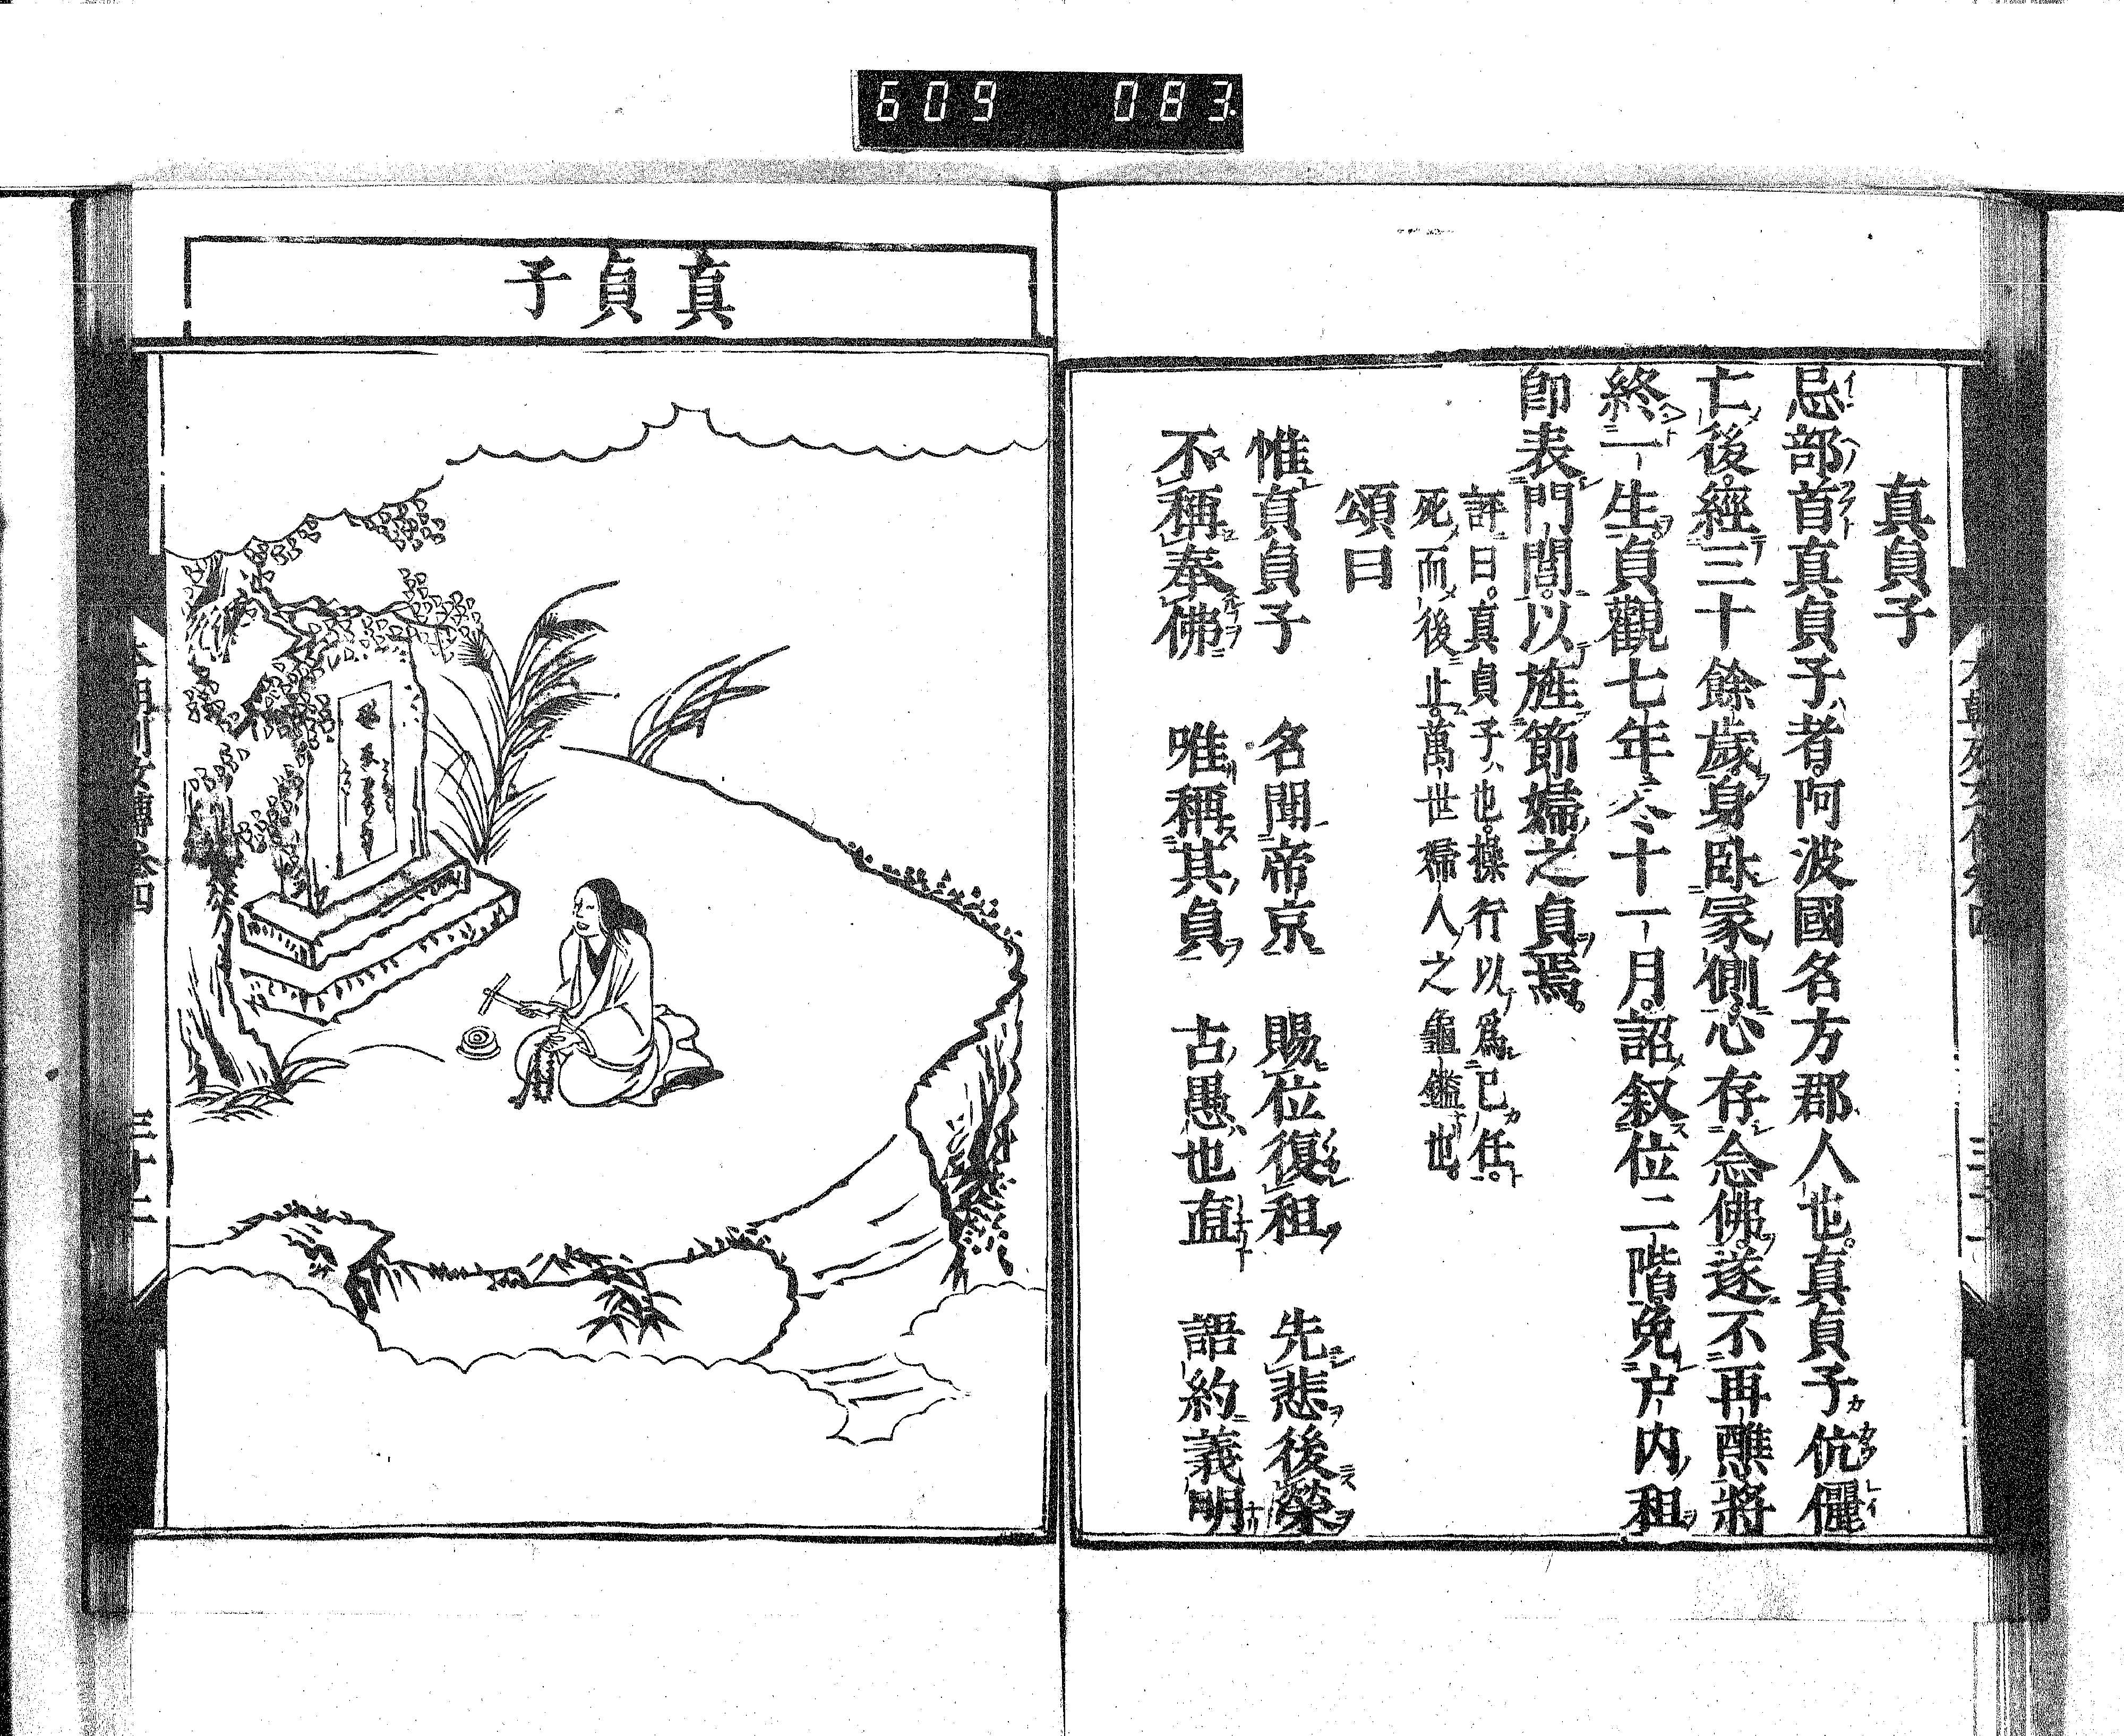 609 083
真貞子
忌部首真貞子者。阿波國名方郡人也。真貞子伉儷
亡後。經三十餘歲。身臥冢側。心存念佛。遂不再醮將
終一生。貞觀七年冬十一月。詔叙位二階。免戸内租。
即表門閭。以旌節婦之貞焉。
評曰。真貞子也。操行以爲已任。
死而後止。萬世婦人之龜鑑也。
頌曰
惟貞貞子 名聞帝京 賜位復租 先悲後榮
不稱奉佛 唯稱其貞 古愚也直 語約義明
真貞子